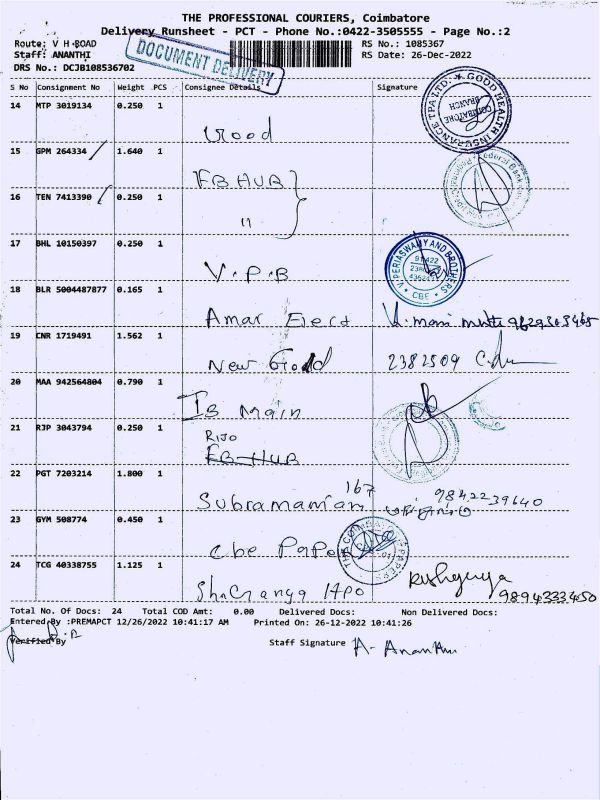 THE PROFESSIONAL COURIERS, Coimbatore
Delivery Runsheet - PCT - Phone No.:0422-3505555 - Page No.:2
Route: V H ROAD
RS No.: 1085367
Staff: ANANTHI
RS Date: 26-Dec-2022
DRS No.: DCJB108536702
DOCUMENT DELIVERY
S No Consignment No Weight PCS Consignee Details Signature
14 MTP 3019134 0.250 1
Good
GOOD HEALTH INSURANCE TPA LTD. COIMBATORE BRANCH
15 GPM 264334 1.640 1
FB HUB
Federal Bank
16 TEN 7413390 0.250 1
"
17 BHL 10150397 0.250 1
V.P.B
V. PERIASWAMY AND BROTHERS CBE
18 BLR 5004487877 0.165 1
Amar Elect
19 CNR 1719491 1.562 1
New Good 2382509
20 MAA 942564804 0.790 1
IB Main
21 RJP 3043794 0.250 1
RIJO
FB HUB
22 PGT 7203214 1.800 1
Subramaniam 167 9842239640
23 GYM 508774 0.450 1
Cbe Paper
24 TCG 40338755 1.125 1
HPO 9894333450
Total No. Of Docs: 24 Total COD Amt: 0.00 Delivered Docs: Non Delivered Docs:
Entered By :PREMAPCT 12/26/2022 10:41:17 AM Printed On: 26-12-2022 10:41:26
Verified By
Staff Signature A. Ananthi